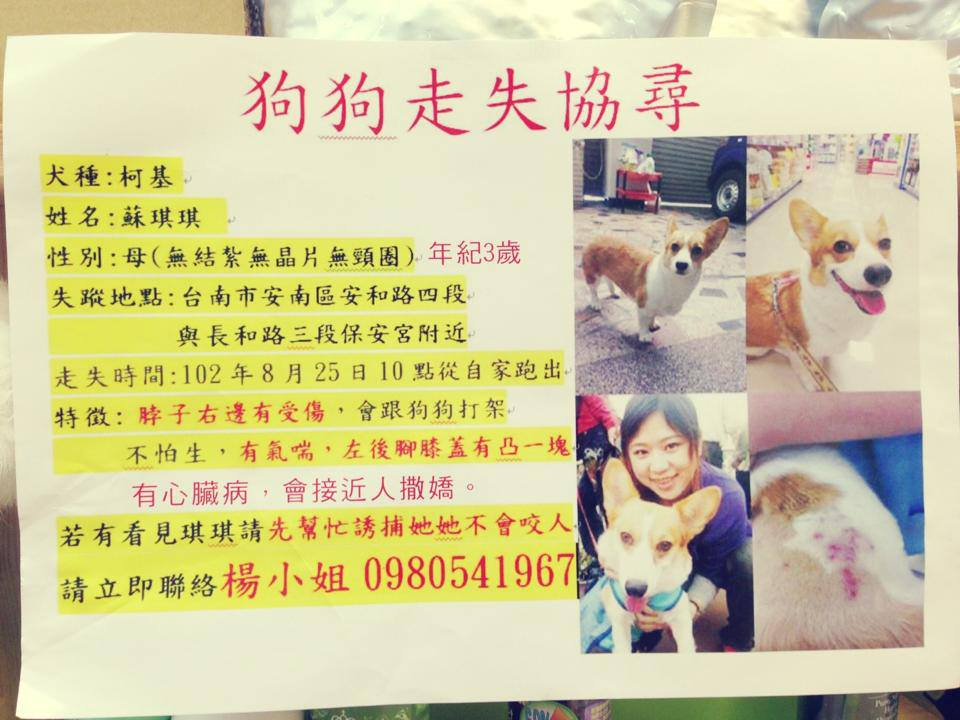 狗狗走失協尋
犬種:柯基
姓名:蘇琪琪
性別:母(無結紮無晶片無頸圈) 年紀3歲
失蹤地點:台南市安南區安和路四段
與長和路三段保安宮附近
走失時間:102年8月25日10點從自家跑出
特徵: 脖子右邊有受傷，會跟狗狗打架
不怕生，有氣喘，左後腳膝蓋有凸一塊
有心臟病，會接近人撒嬌。
若有看見琪琪請先幫忙誘捕她她不會咬人
請立即聯絡楊小姐 0980541967